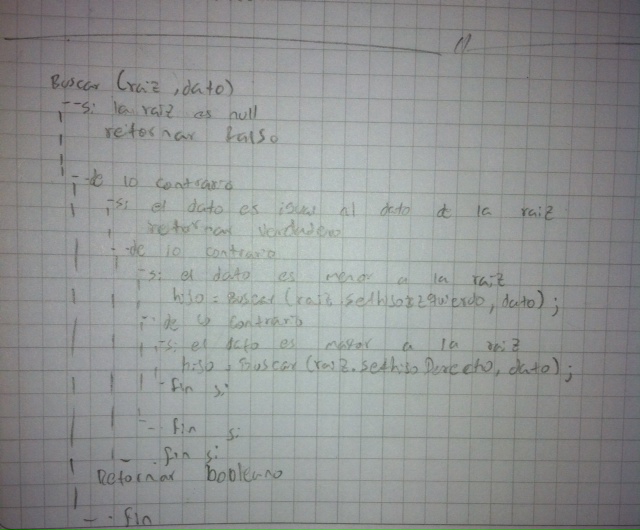 Buscar (raiz, dato)
si la raiz es null
retornar falso
de lo contrario
si el dato es igual al dato d la raiz
retornar verdadero
de lo contrario
si el dato es menor a la raiz
hijo = Buscar (raiz.sethijoIzquierdo, dato);
de lo contrario
si el dato es mayor a la raiz
hijo = Buscar (raiz.sethijoDerecho, dato);
fin si
fin si
fin si
Retornar booleano
fin